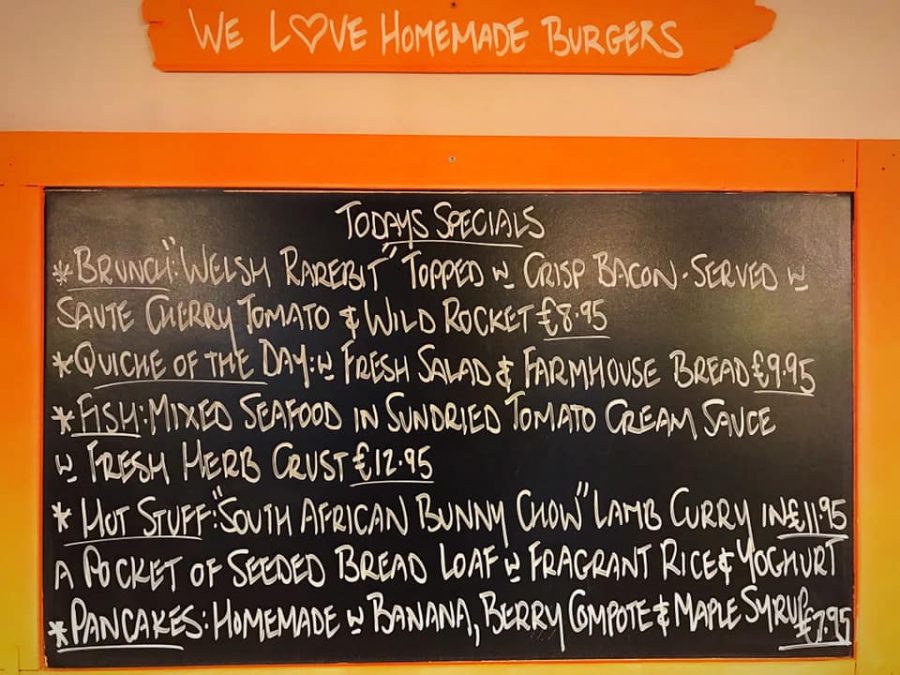 WE L♡VE HOMEMADE BURGERS
TODAYS SPECIALS
* BRUNCH: "WELSH RAREBIT" TOPPED w CRISP BACON · SERVED w
SAUTE CHERRY TOMATO & WILD ROCKET £8.95
* QUICHE OF THE DAY: w FRESH SALAD & FARMHOUSE BREAD £9.95
* FISH: MIXED SEAFOOD IN SUNDRIED TOMATO CREAM SAUCE
w FRESH HERB CRUST £12.95
* HOT STUFF: "SOUTH AFRICAN BUNNY CHOW" LAMB CURRY IN £11.95
A POCKET OF SEEDED BREAD LOAF w FRAGRANT RICE & YOGHURT
* PANCAKES: HOMEMADE w BANANA, BERRY COMPOTE & MAPLE SYRUP £7.95